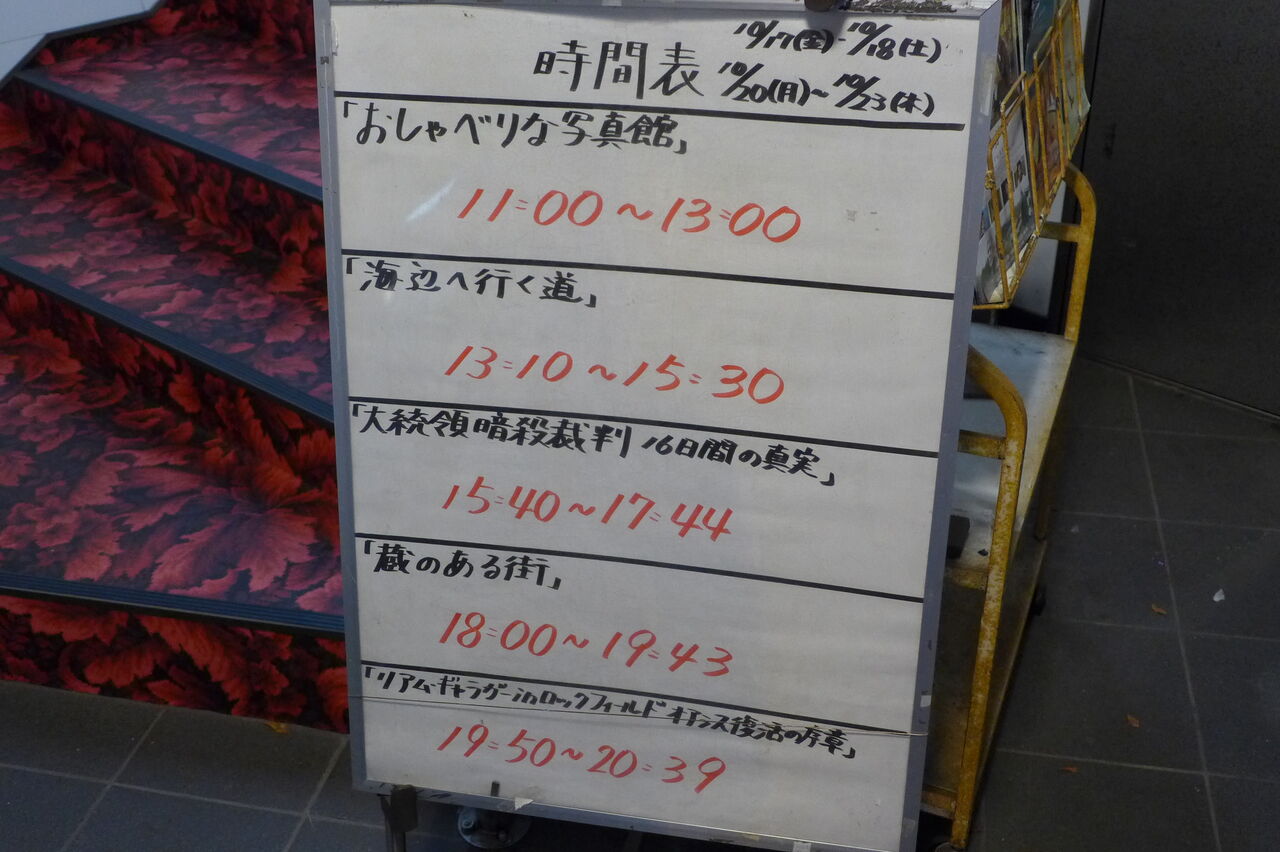 10/17(金)-10/18(土)
時間表 10/20(月)~10/23(木)
「おしゃべりな写真館」
11:00~13:00
「海辺へ行く道」
13:10~15:30
「大統領暗殺裁判 16日間の真実」
15:40~17:44
「蔵のある街」
18:00~19:43
「リアム・ギャラガーinロックフィールド オアシス復活の序章」
19:50~20:39